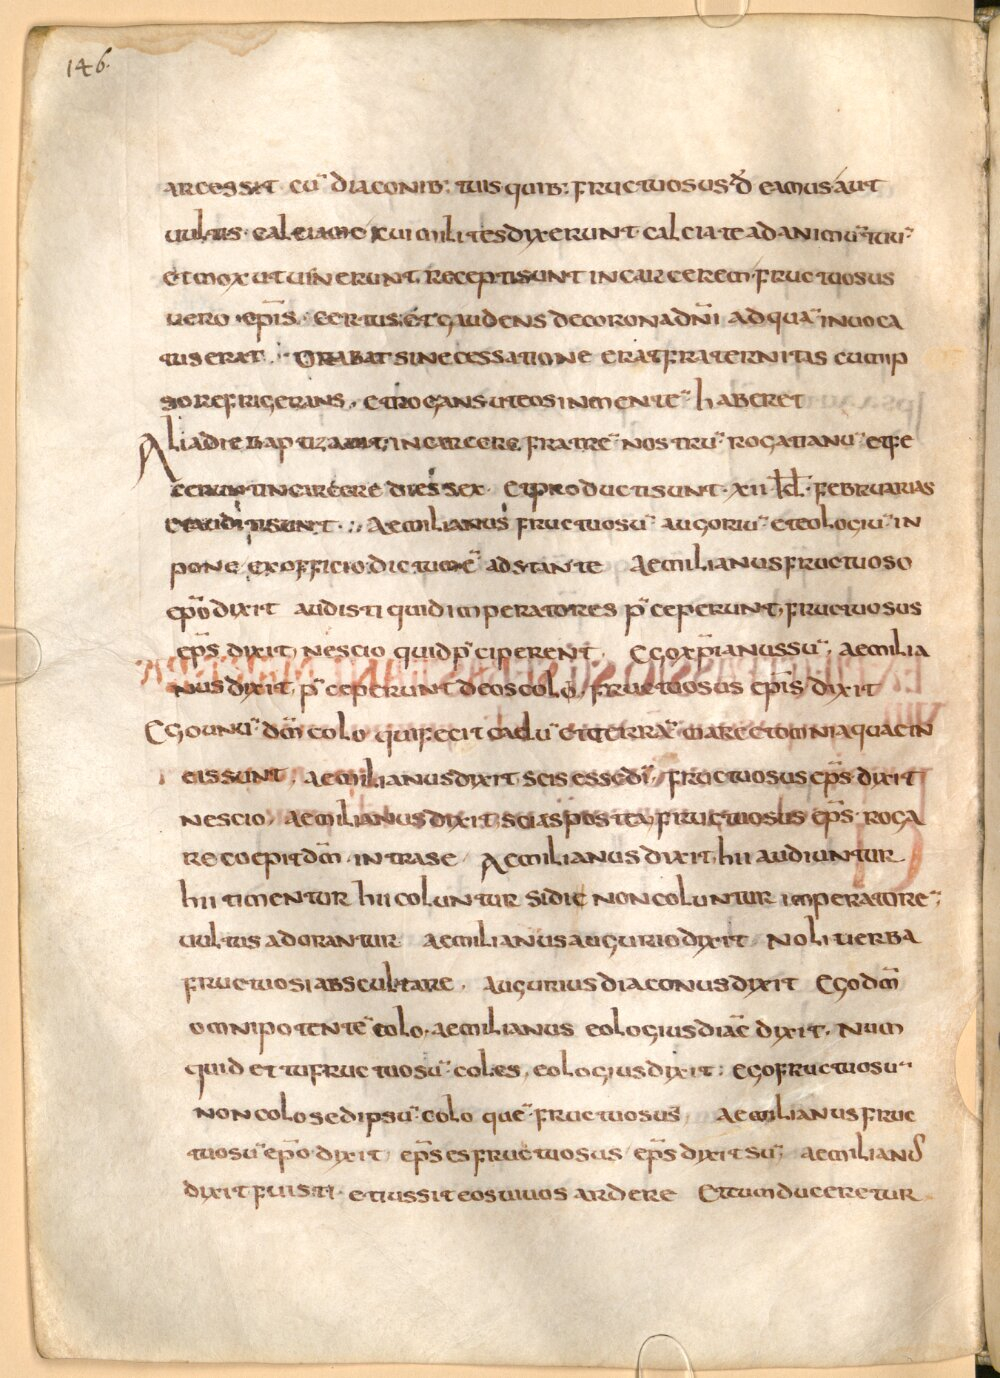 146.
arcessit cū diaconib: tuis quib: fructuosus d̄ eamus aut
uultis calciame cui milites dyxerunt calciate ad animū tuū
et mox ut uinerunt recepti sunt in carcerem fructuosus
uero ep̄is certus et gaudens de corona dn̄i ad quā inuoca
tus erat orabat sine cessatione erat fraternitas cum ip
so refrigerans et rogans ut eos in mentē haberet
Alia die baptizauit in carcere fratrē nostrū rogatianū et fe
cerunt in carcere dies sex et producti sunt xii kl̄ februarias
et auditi sunt Aemilianus fructuosū augoriū et eologiū in
pone ex officio dictum ē adstante Aemilianus fructuoso
ep̄o dixit audisti quid imperatores p̄ceperunt fructuosus
ep̄s dixit nescio quid p̄ciperent Ego xp̄ianus sū aemilia
nus dixit p̄ceperunt deos colo fructuosus ep̄is dixit
Ego unū dm̄ colo qui fecit caelū et terrā mare et omnia quae in
eis sunt aemilianus dixit scis esse deī fructuosus ep̄s dixit
nescio aemilianus dixit scias postea fructuosus ep̄s roga
re coepit dm̄ intra se Aemilianus dixit hii audiuntur
hii timentur hii coluntur si dii non coluntur imperatorē
uultus adorantur aemilianus augurio dixit noli uerba
fructuosi abscultare Augurius diaconus dixit Ego dm̄
omnipotentē colo aemilianus eologius diac̄ dixit Num
quid et tu fructuosū coles eologius dixit ego fructuosū
non colo sed ipsū colo quē fructuosus Aemilianus fruc
tuosū ep̄o dixit ep̄s es fructuosus ep̄s dixit sū aemilianus
dixit fuisti et iussit eos uiuos ardere Et cum duceretur